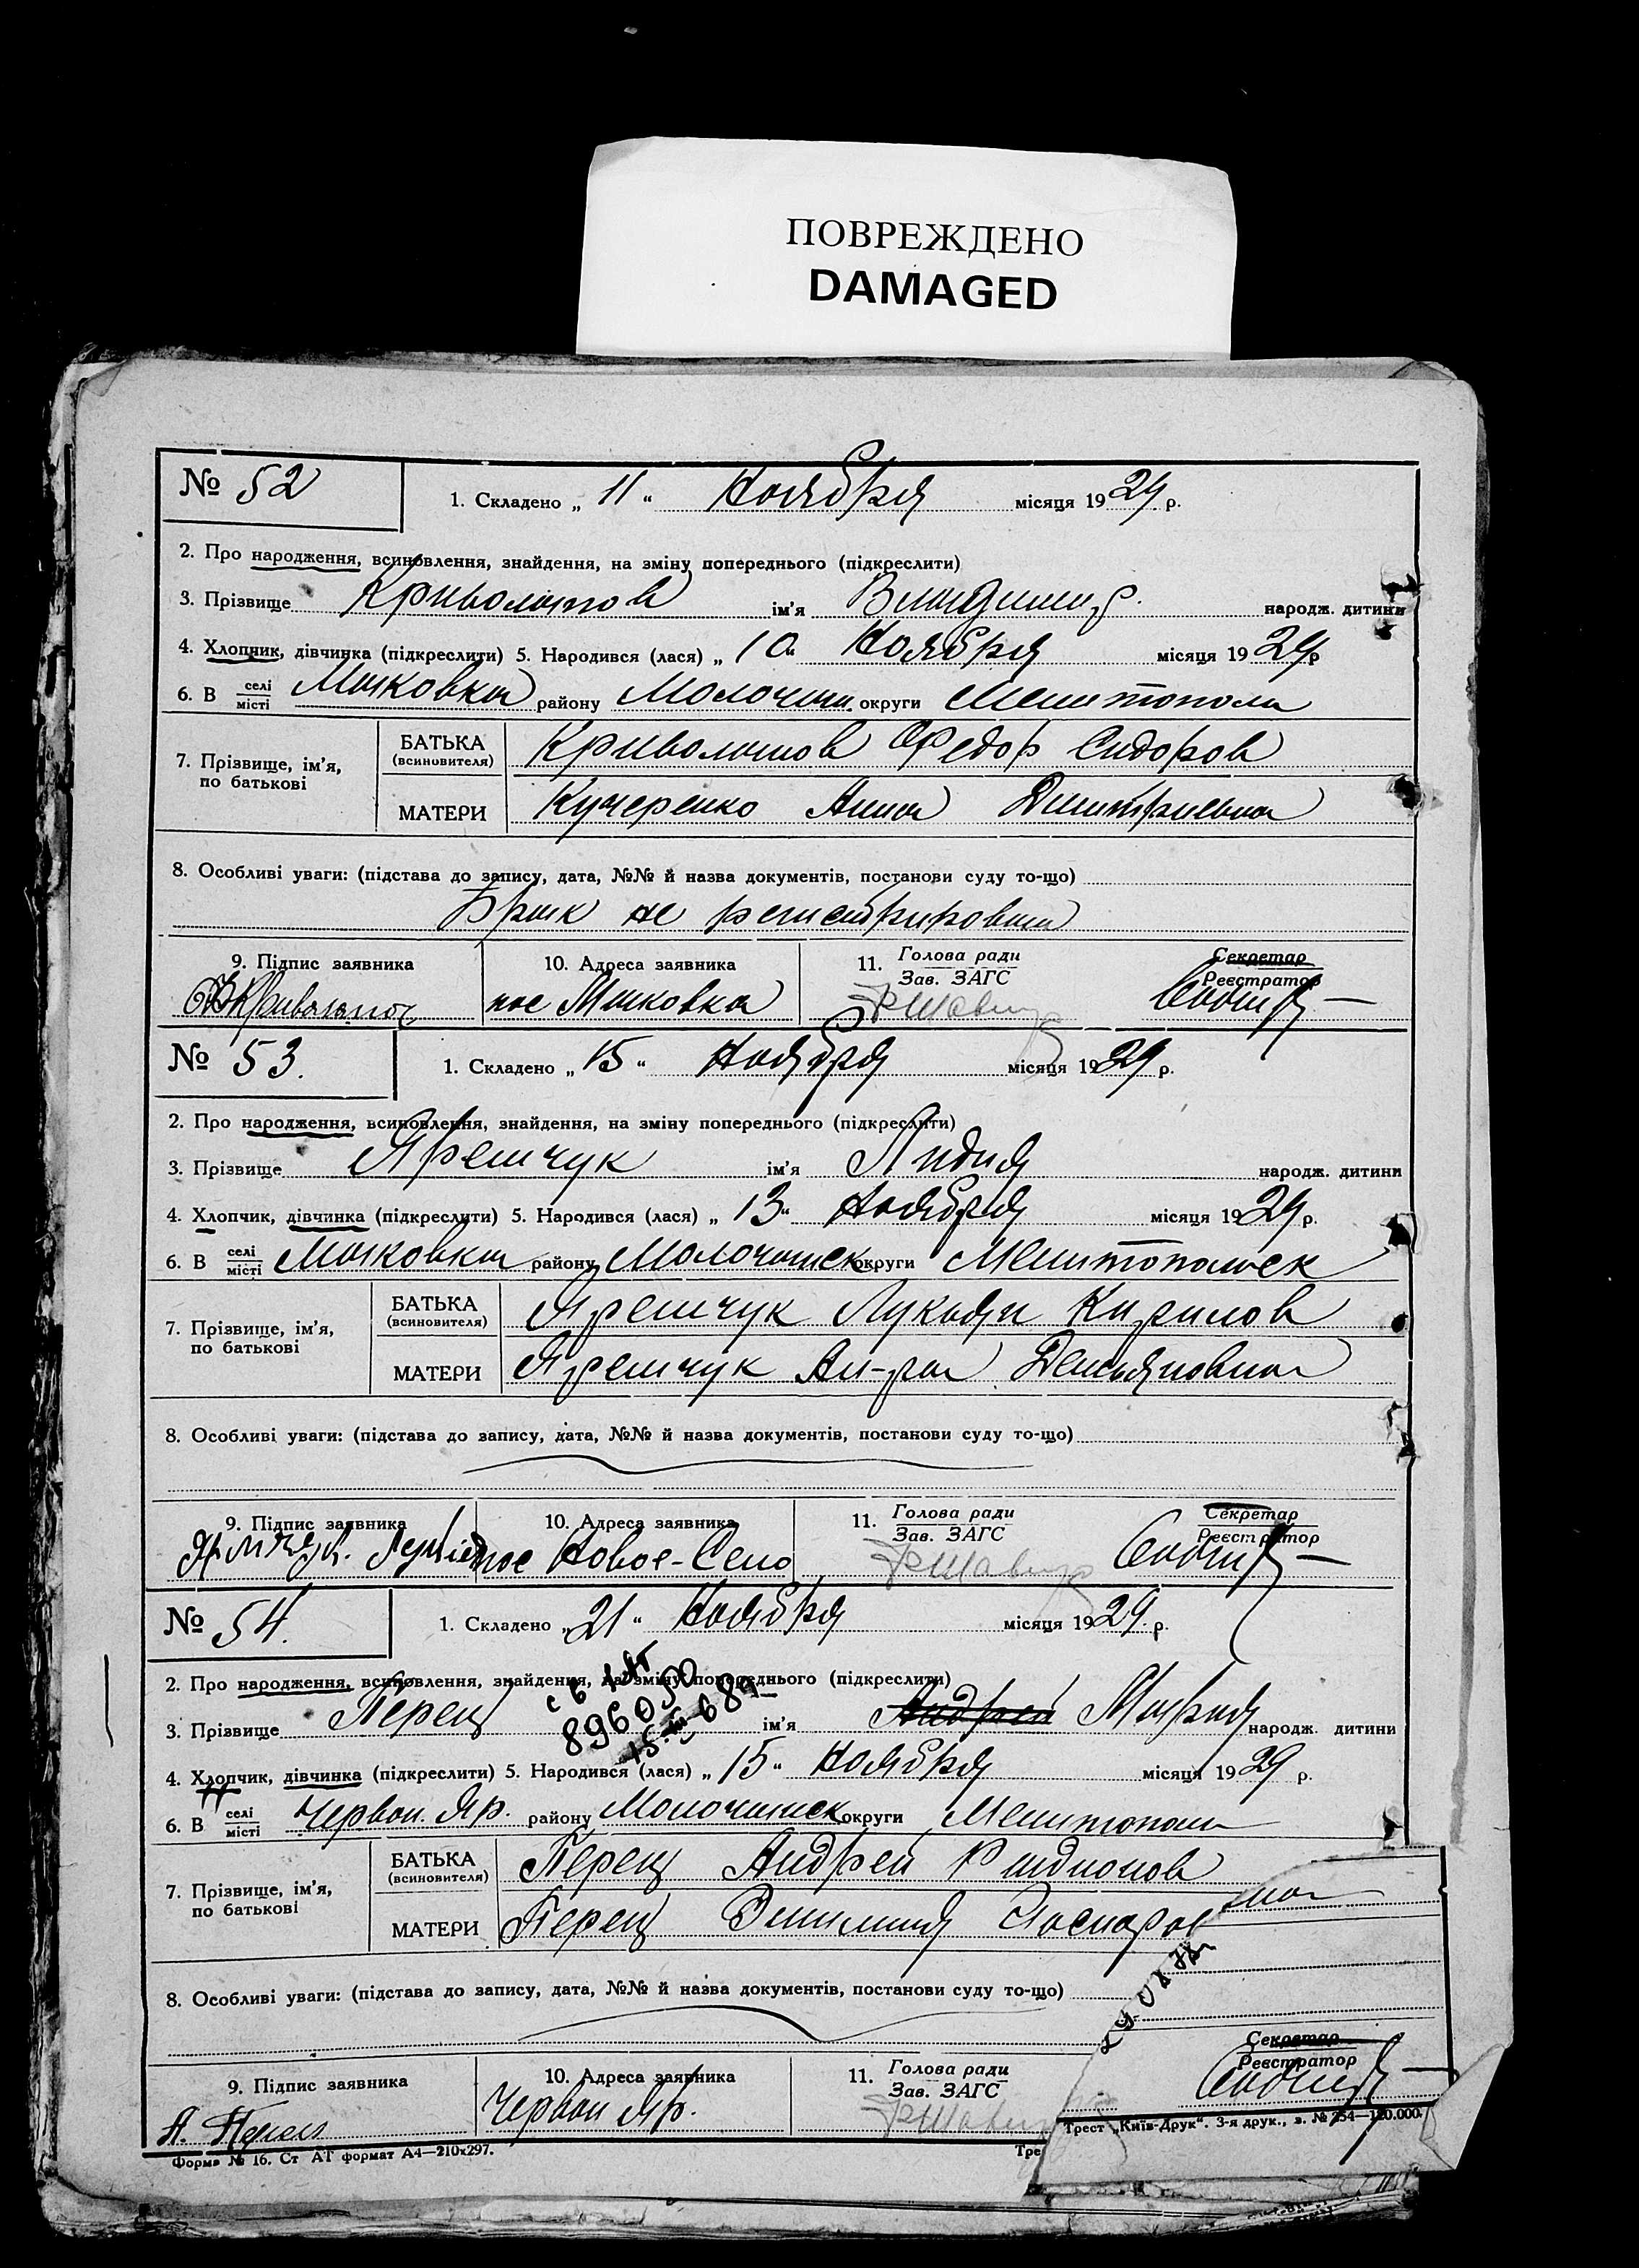 ПОВРЕЖДЕНО
DAMAGED
№ 52
1. Складено „ 11 “ Ноября місяця 1929 р.
2. Про народження, всиновлення, знайдення, на зміну попереднього (підкреслити)
3. Прізвище Криволапов ім'я Владимир народж. дитини
4. Хлопчик, дівчинка (підкреслити) 5. Народився (лася) „ 10 “ Ноября місяця 1929 р
6. В селі місті Маковка району Молочан. округи Мелитопола
7. Прізвище, ім'я, по батькові
БАТЬКА (всиновителя) Криволапов Федор Сидоров
МАТЕРИ Кучеренко Анна Дмитриевна
8. Особливі уваги: (підстава до запису, дата, №№ й назва документів, постанови суду то-що)
Брак не регистрирован
9. Підпис заявника 10. Адреса заявника 11. Голова ради Зав. ЗАГС Секретар Реєстратор
пос Маковка
№ 53.
1. Складено „ 15 “ Ноября місяця 1929 р.
2. Про народження, всиновлення, знайдення, на зміну попереднього (підкреслити)
3. Прізвище Яремчук ім'я Лидия народж. дитини
4. Хлопчик, дівчинка (підкреслити) 5. Народився (лася) „ 13 “ Ноября місяця 1929 р.
6. В селі місті Маковка району Молочанск округи Мелитопольск
7. Прізвище, ім'я, по батькові
БАТЬКА (всиновителя) Яремчук Лукьян Кирилов
МАТЕРИ Яремчук Ал-ра Демьяновна
8. Особливі уваги: (підстава до запису, дата, №№ й назва документів, постанови суду то-що)
9. Підпис заявника 10. Адреса заявника 11. Голова ради Зав. ЗАГС Секретар Реєстратор
пос Новое-Село
№ 54.
1. Складено „ 21 “ Ноября місяця 1929. р.
2. Про народження, всиновлення, знайдення, на зміну попереднього (підкреслити)
896050
3. Прізвище Перец ім'я Андрей Мария народж. дитини
4. Хлопчик, дівчинка (підкреслити) 5. Народився (лася) „ 15 “ Ноября місяця 1929 р.
6. В селі місті Червон. Яр. району Молочанск округи Мелитопол
7. Прізвище, ім'я, по батькові
БАТЬКА (всиновителя) Перец Андрей Родионов
МАТЕРИ Перец Эмилия
8. Особливі уваги: (підстава до запису, дата, №№ й назва документів, постанови суду то-що)
9. Підпис заявника 10. Адреса заявника 11. Голова ради Зав. ЗАГС Секретар Реєстратор
А. Перец Червон Яр.
Форма № 16. Ст АТ формат А4—210х297. Тре Трест „Київ-Друк“. 3-я друк., з. № 254—120.000.